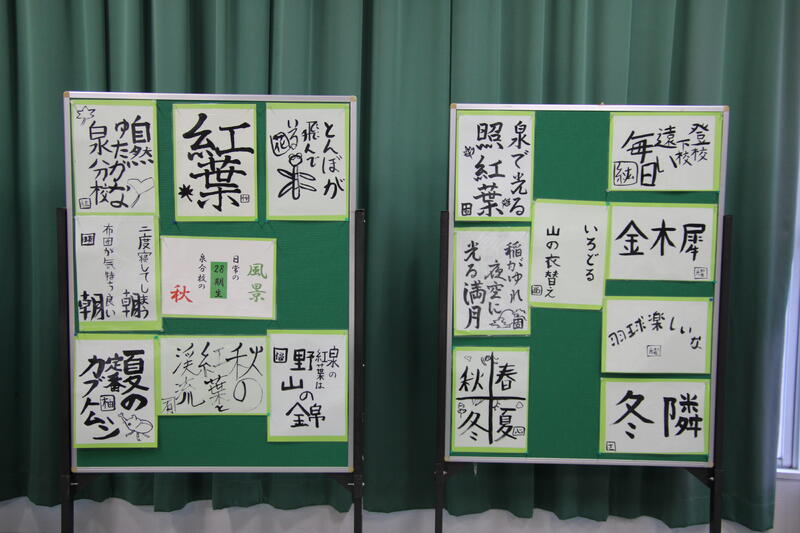 自然
ゆたかな
泉分校
紅葉
とんぼが
飛んで
いる
二度寝してしまう
朝
布団が気持ち良い
朝
風景
日常の
28期生
泉分校の
秋
夏の
定番
カブトムシ
秋の
紅葉と
渓流
泉の
紅葉は
野山の
錦
泉で光る
照紅葉
登校
下校
遠い
毎日
いろどる
山の衣替え
金木犀
稲がゆれ
夜空に
光る満月
羽球楽しいな
春
夏
秋
冬
冬隣